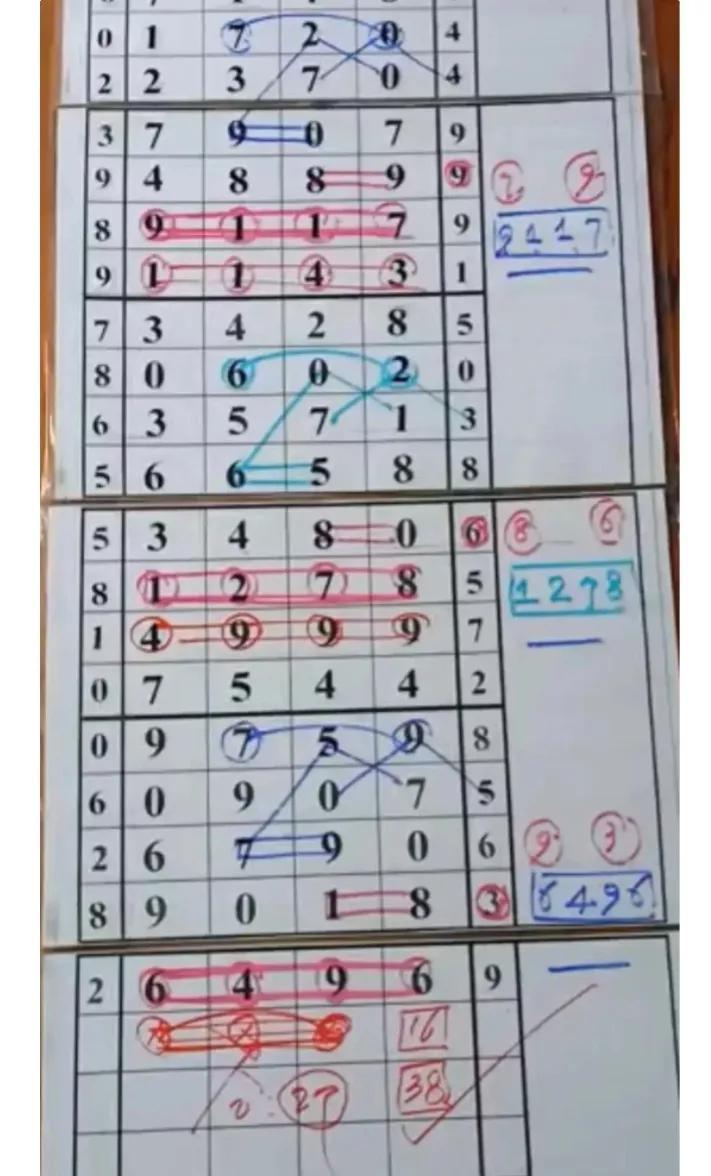 0 1 7 2 0 4
2 2 3 7 0 4
3 7 9 0 7 9
9 4 8 8 9 9 2 9
8 9 1 1 7 9 9117
9 1 1 4 3 1
7 3 4 2 8 5
8 0 6 0 2 0
6 3 5 7 1 3
5 6 6 5 8 8
5 3 4 8 0 6 8 6
8 1 2 7 8 5 1278
1 4 9 9 9 7
0 7 5 4 4 2
0 9 7 5 9 8
6 0 9 0 7 5
2 6 7 9 0 6 9 3
8 9 0 1 8 3 6496
2 6 4 9 6 9
16
27 38